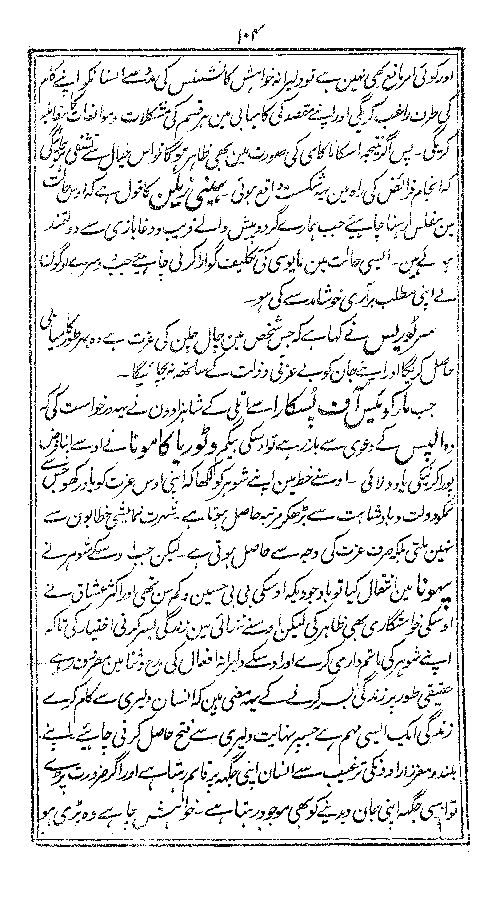 ۱۰۴
اور کوئی امر مانع بھی نہین ہے تو دلیرانہ خواہش کانشنس کی مدد سے انسانکو اپنے کام
کی طرف راغب کریگی اور اپنے مقصد کی کامیابی مین ہر قسم کی مشکلات و موانعات کا مقابلہ
کریگی۔ پس اگر نتیجہ اسکا ناکامی کی صورت مین بھی ظاہر ہوگا تو اس خیال سے تشفی ہو جائیگی
کہ انجام فرائض کی راہ مین یہ شکست واقع ہوئی۔ کا قول ہے کہ اوس حالت
مین مفلس رہنا چاہئے جب ہمارے گرد و پیش والے فریب و دغا بازی سے دولتمند
ہوئے ہین۔ ایسی حالت مین مایوسی کی تکلیف گوارا کرنی چاہئے جب دوسرے لوگون
نے اپنی مطلب براری خوشامد سے کی ہو۔
نے کہا ہے کہ جس شخص مین چال چلن کی عزت ہے وہ ہر طور کامیابی
حاصل کریگا اور اپنے جان کو بے عزتی و ذلت کے ساتھ نہ بچائیگا۔
جب مارکوئیس آف پسکارا سے اٹلی کے شاہزادون نے یہ درخواست کی کہ
وہ کے دعوی سے باز رہے تو اوسکی بیگم وٹوریا کامونا نے اوسے اپنا فرض
پورا کرنیکی یاد دلائی۔ اوسنے خط مین اپنے شوہر کو لکھا کہ اپنی اوس عزت کو یاد رکھو جس سے
تمکو دولت و بادشاہت سے بڑھکر مرتبہ حاصل ہوتا ہے۔ شہرت نمایشی خطابون سے
نہین ملتی بلکہ صرف عزت کی وجہ سے حاصل ہوتی ہے۔ لیکن جب اوسکے شوہر نے
مین انتقال کیا تو باوجودیکہ اوسکی بی بی حسین و کم سن تھی اور اکثر عشاق نے
اوسکی خواستگاری بھی ظاہر کی لیکن اوسنے تنہائی مین زندگی بسر کرنی اختیار کی تاکہ
اپنے شوہر کی ماتم داری کرے اور اوسکے دلیرانہ افعال کی مدح و ثنا مین مصروف رہے۔
حقیقی طور پر زندگی بسر کرنے کے یہ معنی ہین کہ انسان دلیری سے کام کرے
زندگی ایک ایسی مہم ہے جسپر نہایت دلیری سے فتح حاصل کرنی چاہئے۔ اپنے
بلند و معزز ارادونکی ترغیب سے انسان اپنی جگہہ پر قائم رہتا ہے اور اگر ضرورت پڑے
تو ایسی جگہہ اپنی جان دیدینے کو بھی موجود رہتا ہے۔ خواہش چاہے وہ بڑی ہو